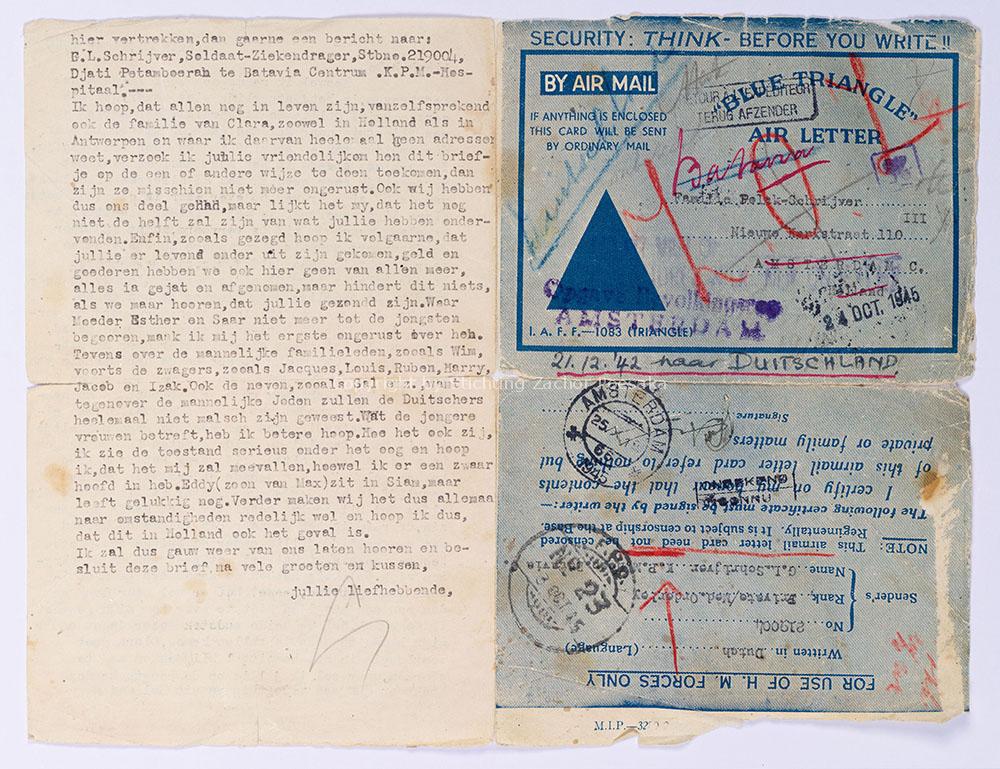 hier vertrekken,dan gaarne een bericht naar:
G.L.Schrijver, Soldaat-Ziekendrager, Stbno.219004,
Djati Petamboerah te Batavia Centrum .K.P.M.-Hos-
pitaal.----
Ik hoop,dat allen nog in leven zijn,vanzelfsprekend
ook de familie van Clara,zoowel in Holland als in
Antwerpen en waar ik daarvan heelemaal geen adressen
weet,verzoek ik jullie vriendelijkom hen dit brief-
je op de een of andere wijze te doen toekomen,dan
zijn ze misschien niet meer ongerust.Ook wij hebben
dus ons deel gehad,maar lijkt het my,dat het nog
niet de helft zal zijn van wat jullie hebben onder-
vonden.Enfin,zooals gezegd hoop ik volgaarne,dat
jullie er levend onder uit zijn gekomen,geld en
goederen hebben we ook hier geen van allen meer,
alles is gejat en afgenomen,maar hindert dit niets,
als we maar hooren,dat jullie gezond zijn.Waar
Moeder Esther en Saar niet meer tot de jongsten
behooren,maak ik mij het ergste ongerust over hen.
Tevens over de mannelijke familieleden,zooals Wim,
voorts de zwagers,zooals Jacques,Louis,Ruben,Harry,
Jacob en Izak.Ook de neven,zooals want
tegenover de mannelijke Joden zullen de Duitschers
heelemaal niet malsch zijn geweest.Wat de jongere
vrouwen betreft,heb ik betere hoop.Hoe het ook zij,
ik zie de toestand serieus onder het oog en hoop
ik,dat het mij zal meevallen,hoewel ik er een zwaar
hoofd in heb.Eddy(zoon van Max)zit in Siam,maar
leeft gelukkig nog.Verder maken wij het dus allemaal
naar omstandigheden redelijk wel en hoop ik dus,
dat dit in Holland ook het geval is.
Ik zal dus gauw weer van ons laten hooren en be-
sluit deze brief,na vele groeten en kussen,
jullie liefhebbende,
SECURITY: THINK- BEFORE YOU WRITE !!
BY AIR MAIL
"BLUE TRIANGLE"
AIR LETTER
IF ANYTHING IS ENCLOSED
THIS CARD WILL BE SENT
BY ORDINARY MAIL
TERUG AFZENDER
Batavia
Familie Polck-Schrijver
III
Nieuwe Kerkstraat 110
AMSTERDAM C.
AMSTERDAM
24 OCT. 1945
I. A. F. F.—1083 (TRIANGLE)
21.12.'42 naar DUITSCHLAND
AMSTERDAM
Signature
private or family matters.
of this airmail letter card refer to nothing but
I certify on my honour that the contents
The following certificate must be signed by the writer:—
ONBEKEND
INCONNU
NOTE: This airmail letter card need not be censored
Regimentally. It is subject to censorship at the Base.
Sender's
Name G.L.Schrijver K.P.M.
Rank Private/Med.Order.
No. 219004
Written in Dutch (Language)
FOR USE OF H. M. FORCES ONLY